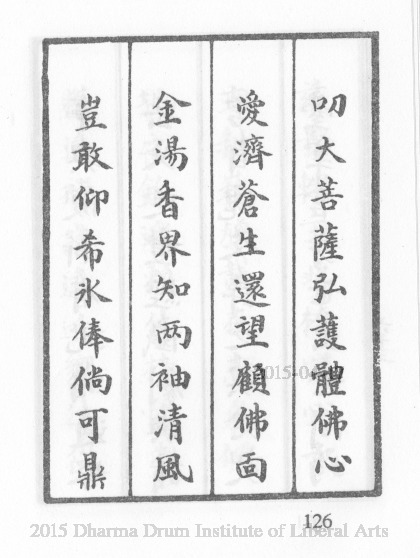 叨大菩薩弘護體佛心
愛濟蒼生還望顧佛面
金湯香界知两袖清風
豈敢仰希氷俸倘可鼎
126
2015 Dharma Drum Institute of Liberal Arts